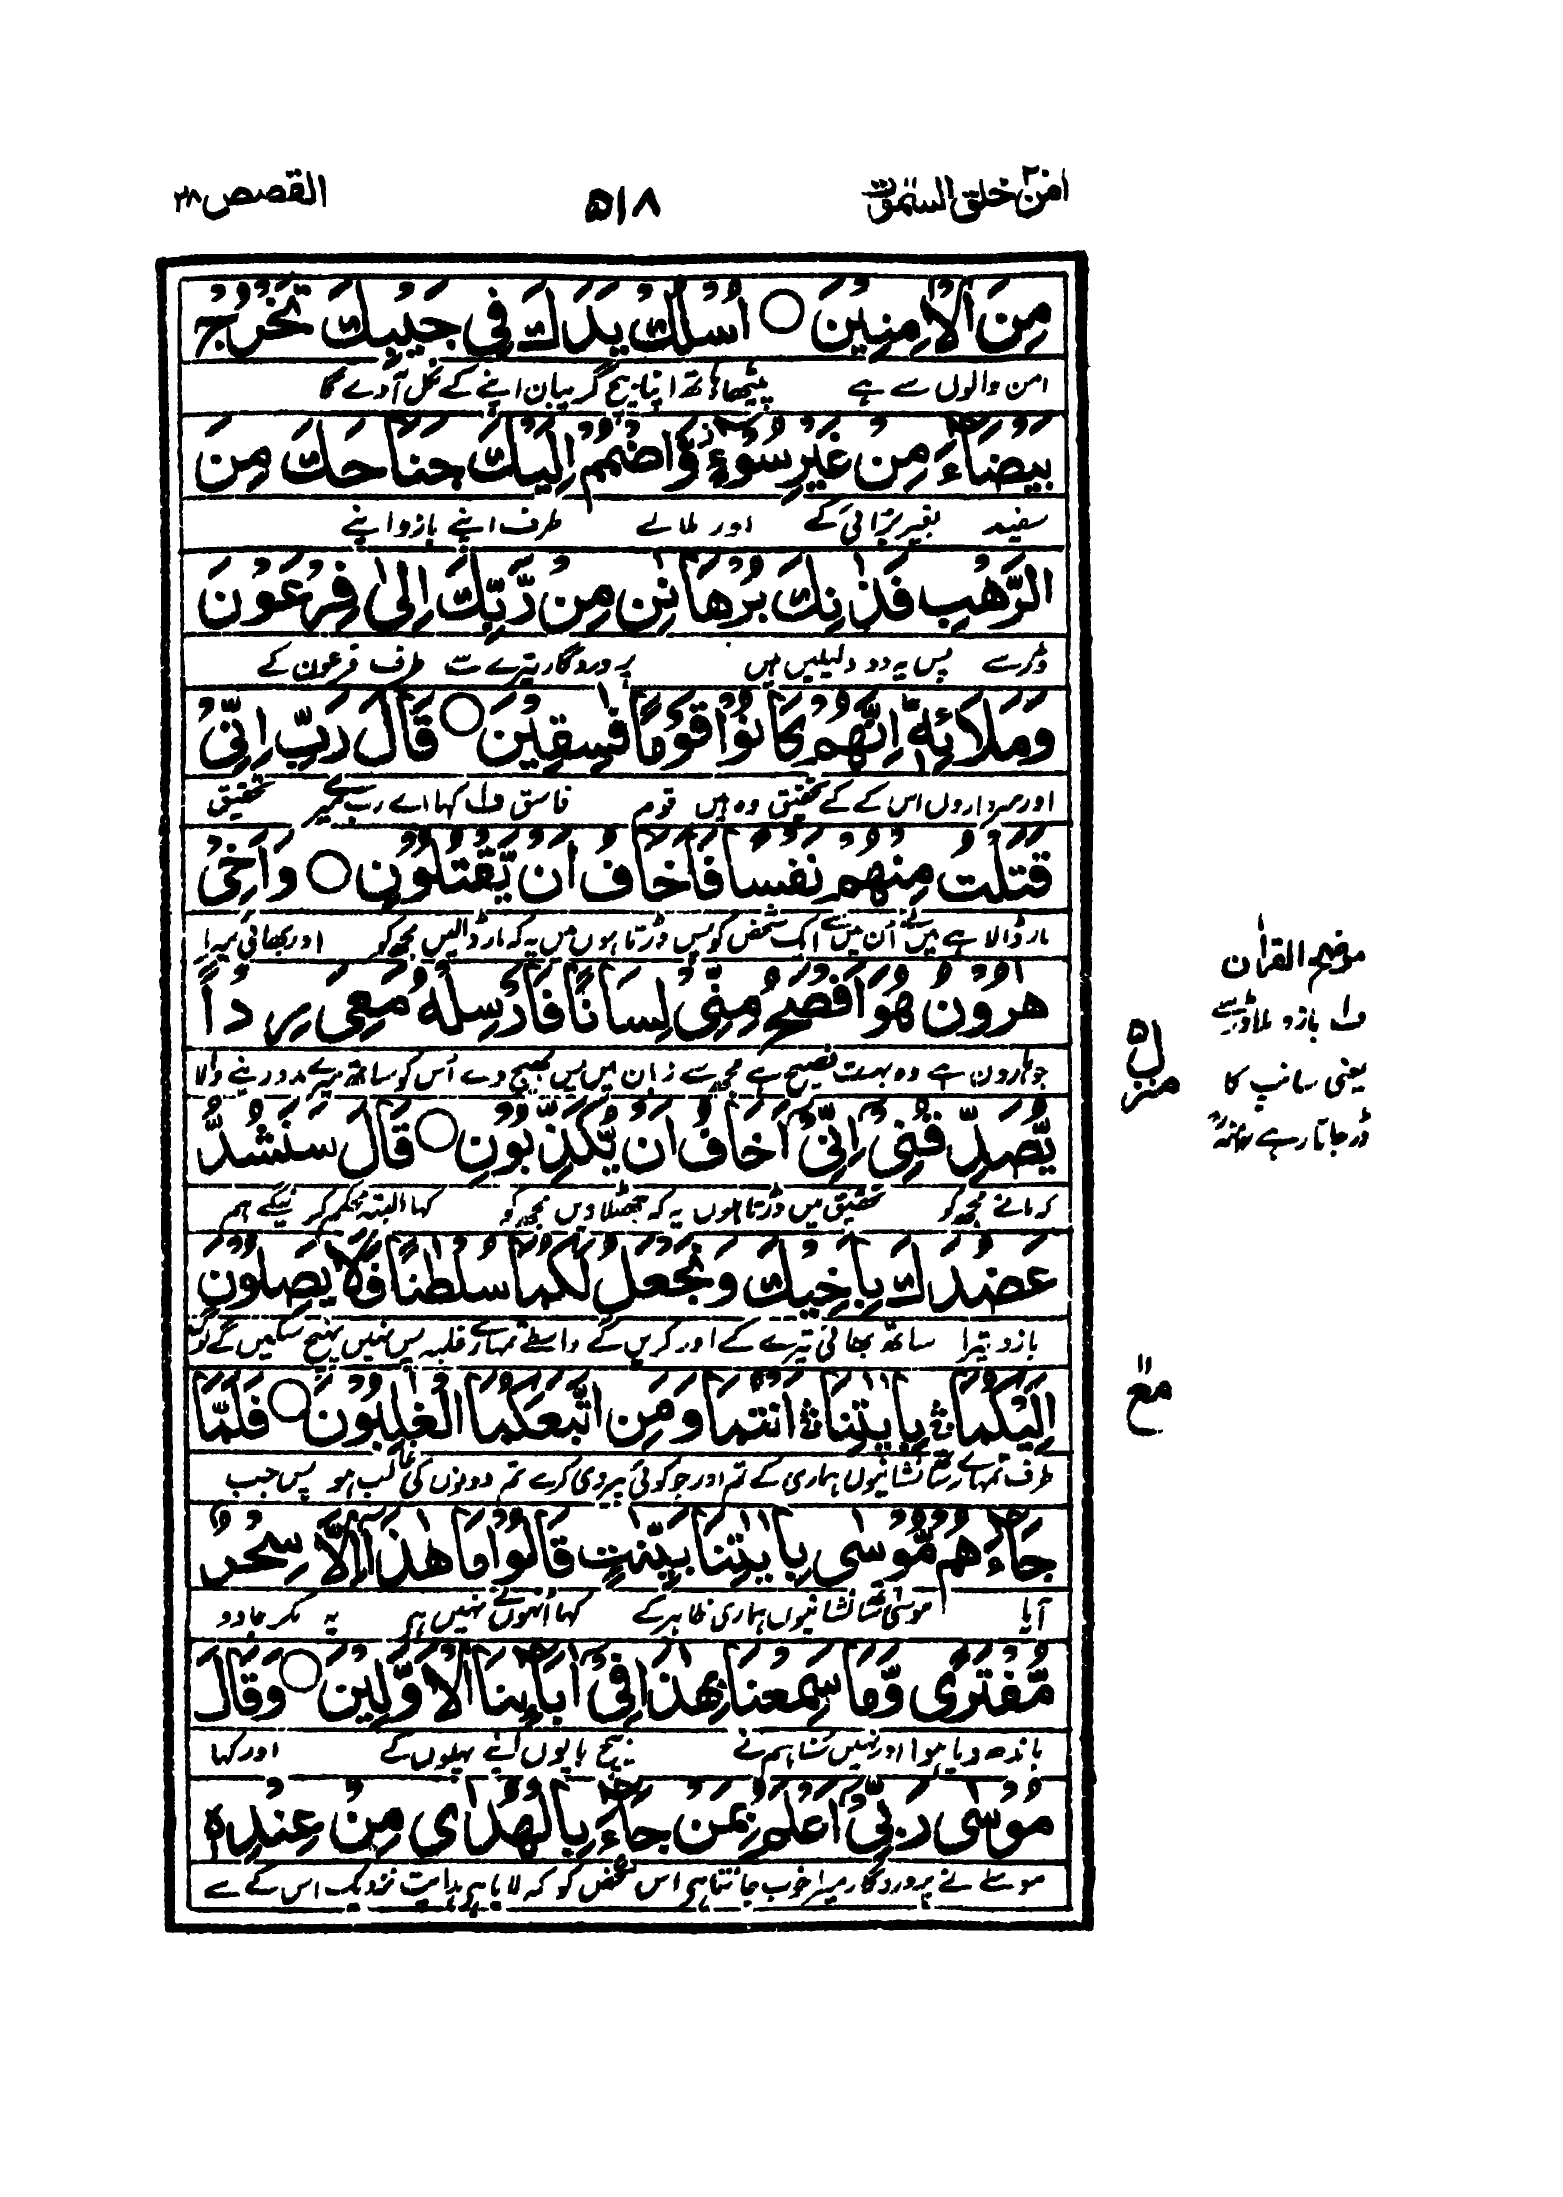 امن خلق السمٰوٰت ۲۰
۵۱۸
القصص ۲۸
مِنَ الْاٰمِنِيْنَ ○ اُسْلُكْ يَدَكَ فِيْ جَيْبِكَ تَخْرُجْ
امن والوں سے ہے پیٹھا ہاتھ اپنا بیچ گریبان اپنے کے نکل آدے گا
بَيْضَآءَ مِنْ غَيْرِ سُوْٓءٍ وَّاضْمُمْ اِلَيْكَ جَنَاحَكَ مِنَ
سفید بغیر بڑائی کے اور ملا لے طرف اپنے بازو اپنے
الرَّهْبِ فَذٰنِكَ بُرْهَانٰنِ مِنْ رَّبِّكَ اِلٰى فِرْعَوْنَ
ڈر سے پس یہ دو دلیلیں ہیں پروردگار تیرے سے طرف فرعون کے
وَمَلَا۟ئِهٖ ؕ اِنَّهُمْ كَانُوْا قَوْمًا فٰسِقِيْنَ ○ قَالَ رَبِّ اِنِّيْ
اور سرداروں اس کے کے تحقیق وہ ہیں قوم فاسق ف۱ کہا اے رب میرے تحقیق
قَتَلْتُ مِنْهُمْ نَفْسًا فَاَخَافُ اَنْ يَّقْتُلُوْنِ ○ وَاَخِيْ
مار ڈالا ہے میں نے اُن میں سے ایک شخص کو پس ڈرتا ہوں میں یہ کہ مار ڈالیں مجھ کو اور بھائی میرا
هٰرُوْنُ هُوَ اَفْصَحُ مِنِّيْ لِسَانًا فَاَرْسِلْهُ مَعِيَ رِدْاً
جو ہارون ہے وہ بہت فصیح ہے مجھ سے زبان میں پس بھیج دے اُس کو ساتھ میرے مدد دینے والا
يُّصَدِّقُنِيْٓ اِنِّيْٓ اَخَافُ اَنْ يُّكَذِّبُوْنِ ○ قَالَ سَنَشُدُّ
کہ مانے مجھ کو تحقیق میں ڈرتا ہوں یہ کہ جھٹلادیں مجھ کو کہا البتہ محکم کریں گے ہم
عَضُدَكَ بِاَخِيْكَ وَنَجْعَلُ لَكُمَا سُلْطٰنًا فَلَا يَصِلُوْنَ
بازو تیرا ساتھ بھائی تیرے کے اور کریں گے واسطے تمہارے غلبہ پس نہیں پہنچ سکیں گے لوگ
اِلَيْكُمَا ۛ بِاٰيٰتِنَا ۛ اَنْتُمَا وَمَنِ اتَّبَعَكُمَا الْغٰلِبُوْنَ ○ فَلَمَّا
طرف تمہارے ساتھ نشانیوں ہماری کے تم اور جو کوئی پیروی کرے تم دونوں کی غالب ہو پس جب
جَآءَهُمْ مُّوْسٰى بِاٰيٰتِنَا بَيِّنٰتٍ قَالُوْا مَا هٰذَآ اِلَّا سِحْرٌ
آیا موسیٰ ساتھ نشانیوں ہماری ظاہر کے کہا اُنہوں نے نہیں ہے یہ مگر جادو
مُّفْتَرًى وَّمَا سَمِعْنَا بِهٰذَا فِيْٓ اٰبَآئِنَا الْاَوَّلِيْنَ ○ وَقَالَ
باندھ دیا ہوا اور نہیں سُنا ہم نے بیچ بابوں اپنے پہلوں کے اور کہا
مُوْسٰى رَبِّيْٓ اَعْلَمُ بِمَنْ جَآءَ بِالْهُدٰى مِنْ عِنْدِهٖ
موسےٰ نے پروردگار میرا خوب جانتا ہے اس شخص کو کہ لایا ہے ہدایت نزدیک اس کے سے
موضح القرآن
ف۱ بازو ملا ڈر سے
یعنی سانپ کا
ڈر جاتا رہے
منزل ۵
مع